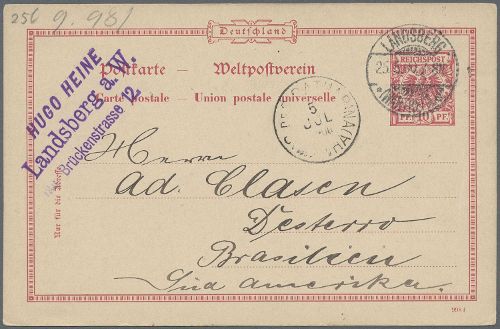 256 9.981
Deutschland
Postkarte Weltpostverein
Carte postale — Union postale universelle
HUGO HEINE
Landsberg a. W.
Brückenstrasse 12.
LANDSBERG
REICHSPOST
10 PF 10
5
JUL
Nur für die
Herrn
Ad. Clasen
Desterro
Brasilien
Süd Amerika.